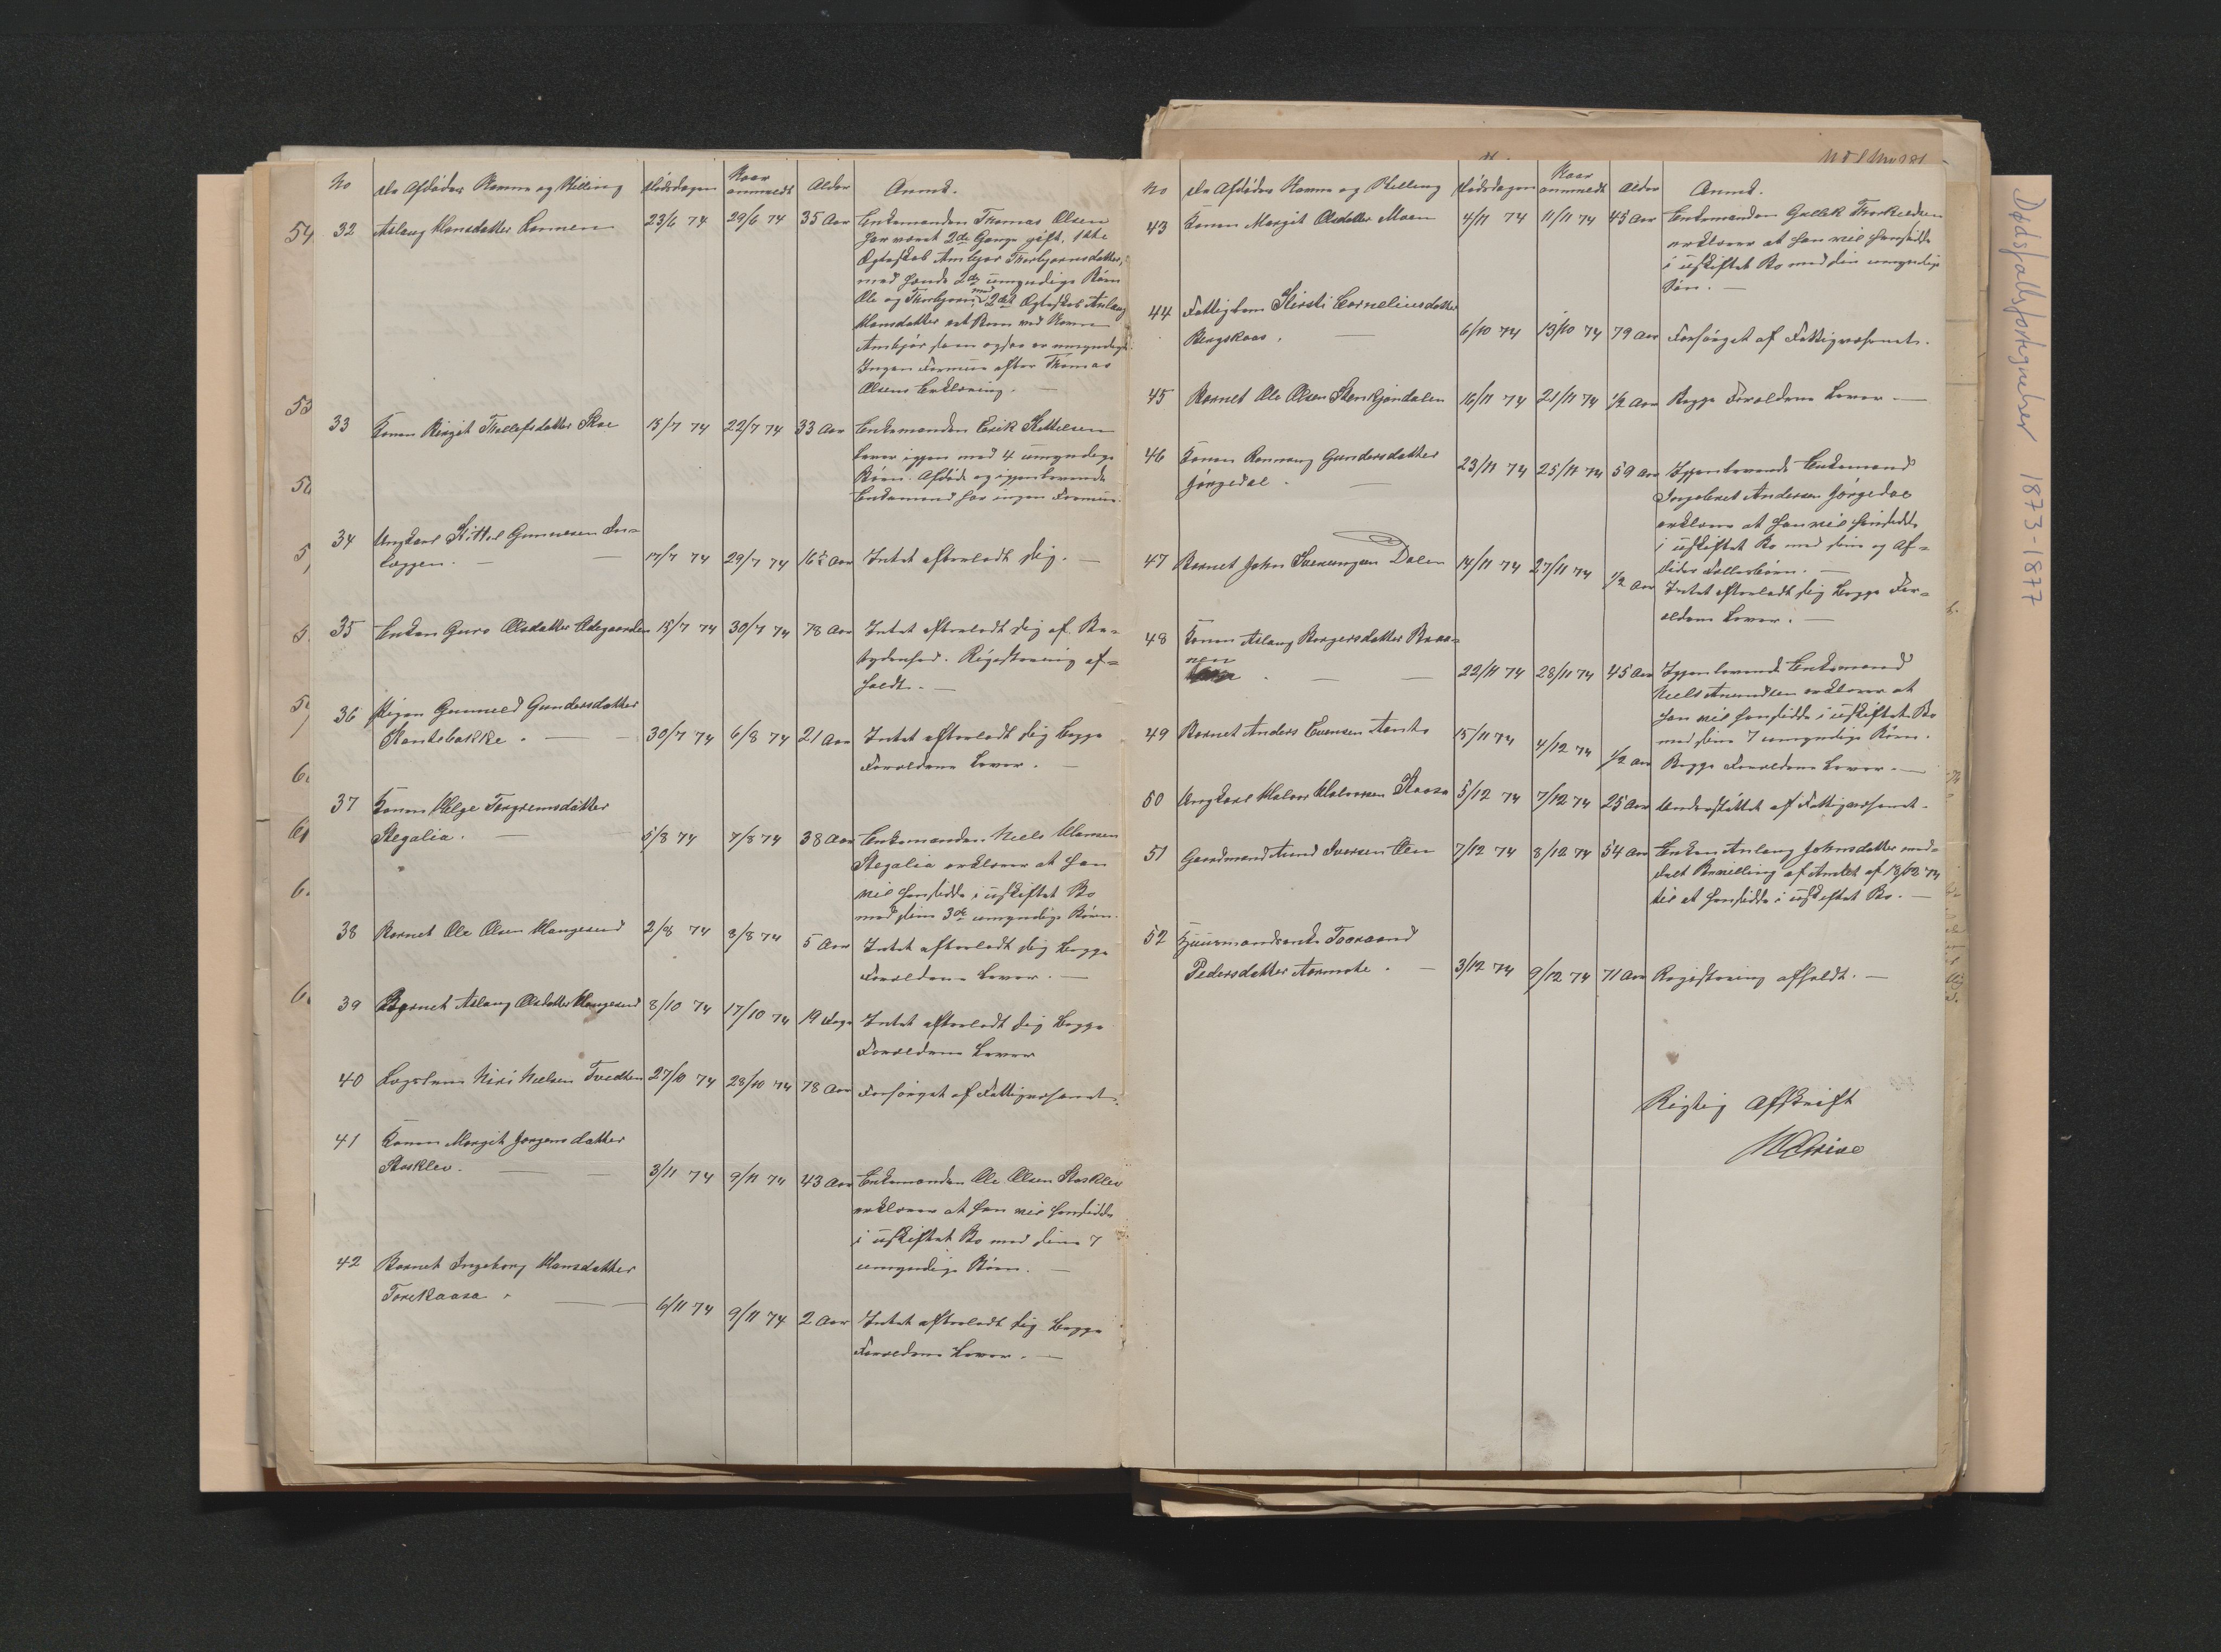 No
De Afdødes Navne og Stilling
Dødsdagen
Naar anmeldt
Alder
Anmk.
32 Aslaug Hansdatter Lonnen 23/6 74 29/6 74 35 Aar Enkemanden Thomas Olsen
har været 2de Gange gift. 1ste
Ægteskab Ambjør Thorbjørnsdatter,
med hende 2de umyndige Børn
Ole og Thorbjørn, med 2det Ægteskab Aslaug
Hansdatter et Barn ved Navn
Ambjør som ogsaa er umyndig.
Ingen Formue efter Thomas
Olsens Erklæring. —
33 Konen Birgit Thollefsdatter Skoe 15/7 74 22/7 74 33 Aar Enkemanden Erik Kittelsen
lever igjen med 4 umyndige
Børn. Afdøde og igjenlevende
Enkemand har ingen Formue.
34 Ungkarl Kittel Gunnersen
læggen. — 17/7 74 29/7 74 16½ Aar Intet efterladt sig. —
35 Enken Guro Olsdatter Ødegaarden 15/7 74 30/7 74 78 Aar Intet efterladt sig af Be=
tydenhed. Registrering af=
holdt. —
36 Pigen Gunneld Gundersdatter
Skontebakke. — 30/7 74 6/8 74 21 Aar Intet efterladt sig begge
Forældrene lever. —
37 Konen Helge Torgremsdatter
Stegalia. — 5/8 74 7/8 74 38 Aar Enkemanden Niels Hansen
Stegalia erklærer at han
vil hensidde i uskiftet Bo
med sine 3de umyndige Børn.
38 Barnet Ole Olsen Haugesund 2/8 74 8/8 74 5 Aar Intet efterladt sig begge
Forældrene lever. —
39 Barnet Aslaug Olsdatter Haugesund 8/10 74 17/10 74 19 Dage Intet efterladt sig begge
Forældrene lever
40 Lægslem Niri Nielsen Tvedten 27/10 74 28/10 74 78 Aar Forsørget af Fattigvæsenet.
41 Konen Margit Jorgensdatter
Skosklev. — 3/11 74 9/11 74 43 Aar Enkemanden Ole Olsen Skosklev
erklærer at han vil hensidde
i uskiftet Bo med sine 7
umyndige Børn. —
42 Barnet Ingeborg Hansdatter
Torekaasa. — 6/11 74 9/11 74 2 Aar Intet efterladt sig begge
Forældrene lever. —
No
De Afdødes Navne og Stilling
Dødsdagen
Naar anmeldt
Alder
Anmk.
43 Konen Margit Olsdatter Moen 4/11 74 11/11 74 45 Aar Enkemanden Gullik Thorkildsen
erklærer at han vil hensidde
i uskiftet Bo med sin umyndige
Søn. —
44 Fattiglem Kirsti Corneliusdatter
Bergskaas. — 6/10 74 13/10 74 79 Aar Forsørget af Fattigvæsenet.
45 Barnet Ole Olsen Stenkjøndalen 16/11 74 21/11 74 ½ Aar Begge Forældrene lever —
46 Konen Rannaug Gundersdatter
Jørgedal. — 23/11 74 25/11 74 59 Aar Igjenlevende Enkemand
Ingebret Andersen Jørgedal
erklærer at han vil hensidde
i uskiftet Bo med sine og Af=
dødes Fællesbørn. —
47 Barnet John Sveinungsen Dalen 14/11 74 27/11 74 ½ Aar Intet efterladt sig begge For=
ældrene lever. —
48 Konen Aslaug Borgersdatter Braa=
nen — 22/11 74 28/11 74 45 Aar Igjenlevende Enkemand
Niels Amundsen erklærer at
han vil hensidde i uskiftet Bo
med sine 7 umyndige Børn.
49 Barnet Anders Evensen 15/11 74 4/12 74 ½ Aar Begge Forældrene lever. —
50 Ungkarl Halvor Halvorsen Kaasa 5/12 74 7/12 74 25 Aar Understøttet af Fattigvæsenet.
51 Gaardmand Amund Iversen Lien 7/12 74 8/12 74 54 Aar Enken Aslaug Johnsdatter med=
delt Bevilling af Amtet af 18/12 74
til at hensidde i uskiftet Bo. —
52 Huusmandsenke Taaraand
Pedersdatter Aarmote. — 3/12 74 9/12 74 71 Aar Registrering afholdt. —
Rigtig Afskrift
Dødsfallsfortegnelser 1873-1877